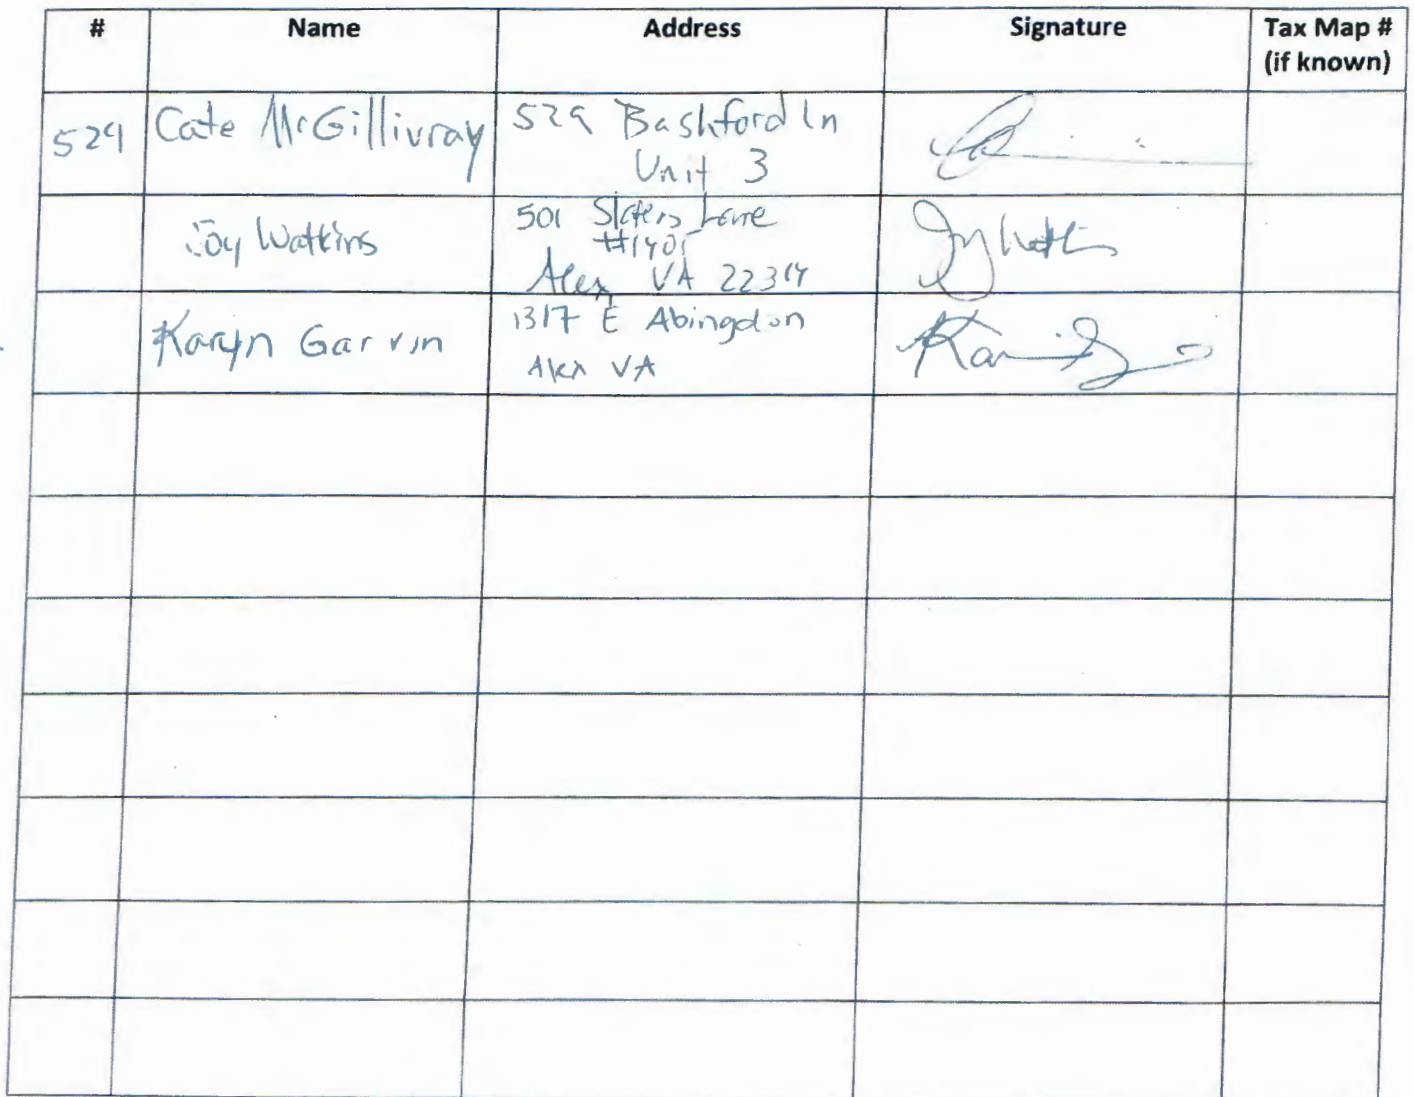 # Name Address Signature Tax Map #
(if known)
529 Cate McGillivray 529 Bashford Ln
Unit 3
Joy Watkins 501 Slaters Lane
#1401
Alex VA 22314
Karyn Garvin 1317 E Abingdon
Alex VA